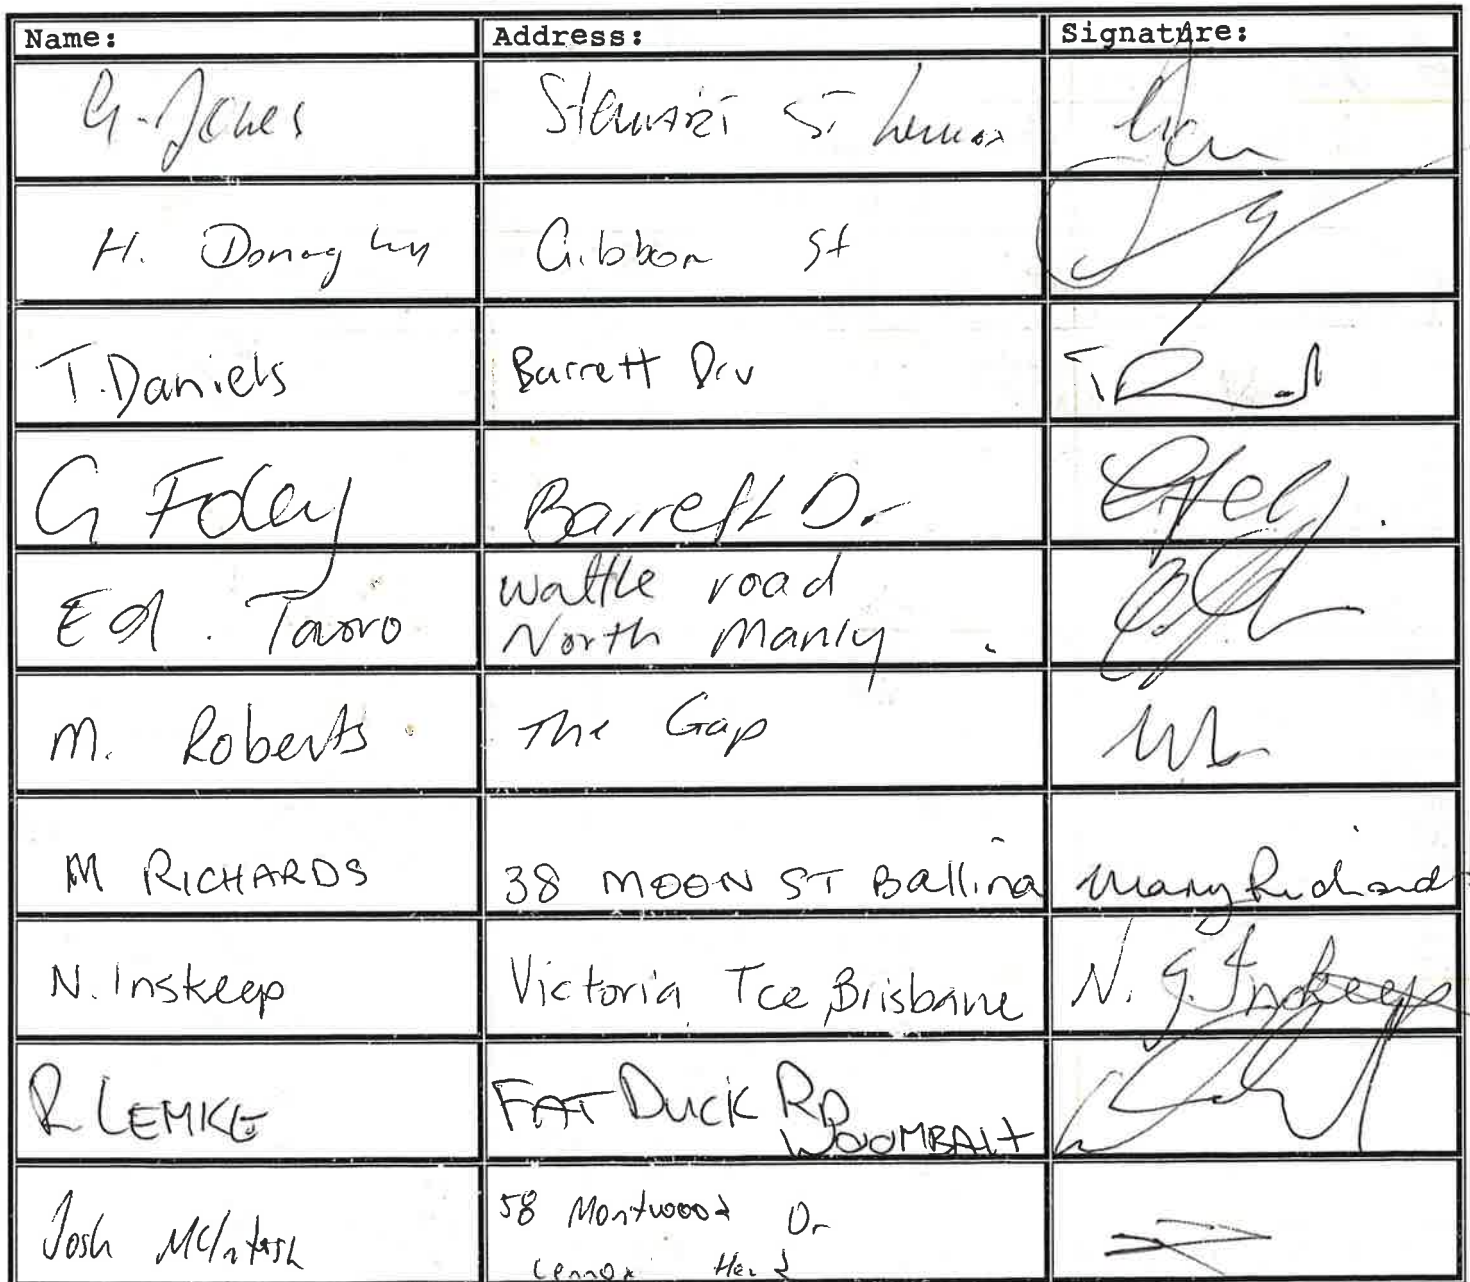 Name: Address: Signature:
G. Jones Stewart St Lennox
H. Donaghy Gibbon St
T. Daniels Barrett Drv
G Foley Barrett Dr
Ed. Tavoro Wattle road
North Manly.
M. Roberts The Gap
M RICHARDS 38 MOON ST Ballina Mary Richards
N. Inskeep Victoria Tce Brisbane N. G. Inskeep
R LEMKE FAT DUCK RD
WOOMBAH
Josh McIntosh 58 Montwood Dr
Lennox Head